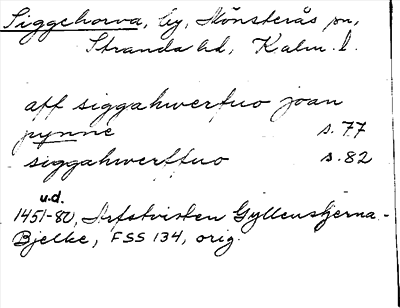 Siggehorva, by, Mönsterås sn,
Stranda hd, Kalm. l.
aff siggahwerfuo joan
pynne s. 77
siggahwerffuo s. 82
u.d.
1451-80, Arfstvisten Gyllenstjerna-
Bjelke, FSS 134, orig.